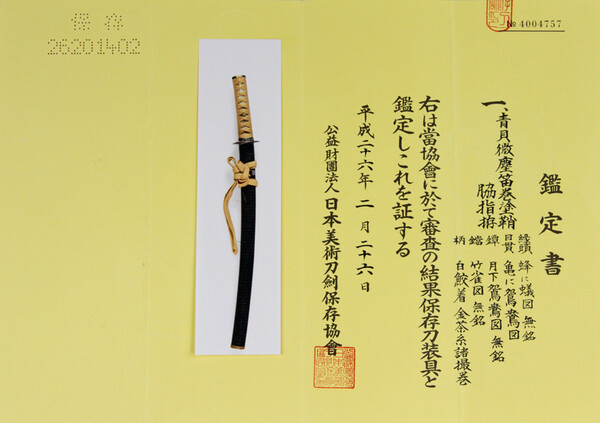 保存
26201402
№ 4004757
鑑定書
一、青貝微塵笛巻塗鞘
脇指拵
縁頭 蜂に蟻図 無銘
目貫 亀に鴛鴦図
鐔 月下鴛鴦図 無銘
鐺 竹雀図 無銘
柄 白鮫着 金茶糸諸撮巻
右は當協會に於て審査の結果保存刀装具と
鑑定しこれを証する
平成二十六年 二月二十六日
公益財團法人 日本美術刀剣保存協會